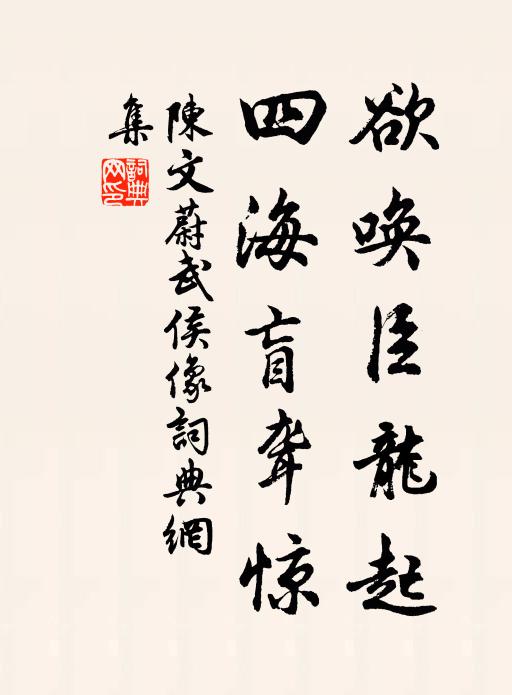 欲唤臣龍起
四海盲聋惊
陳文蔚武侯像詞典網
集
詞典网印